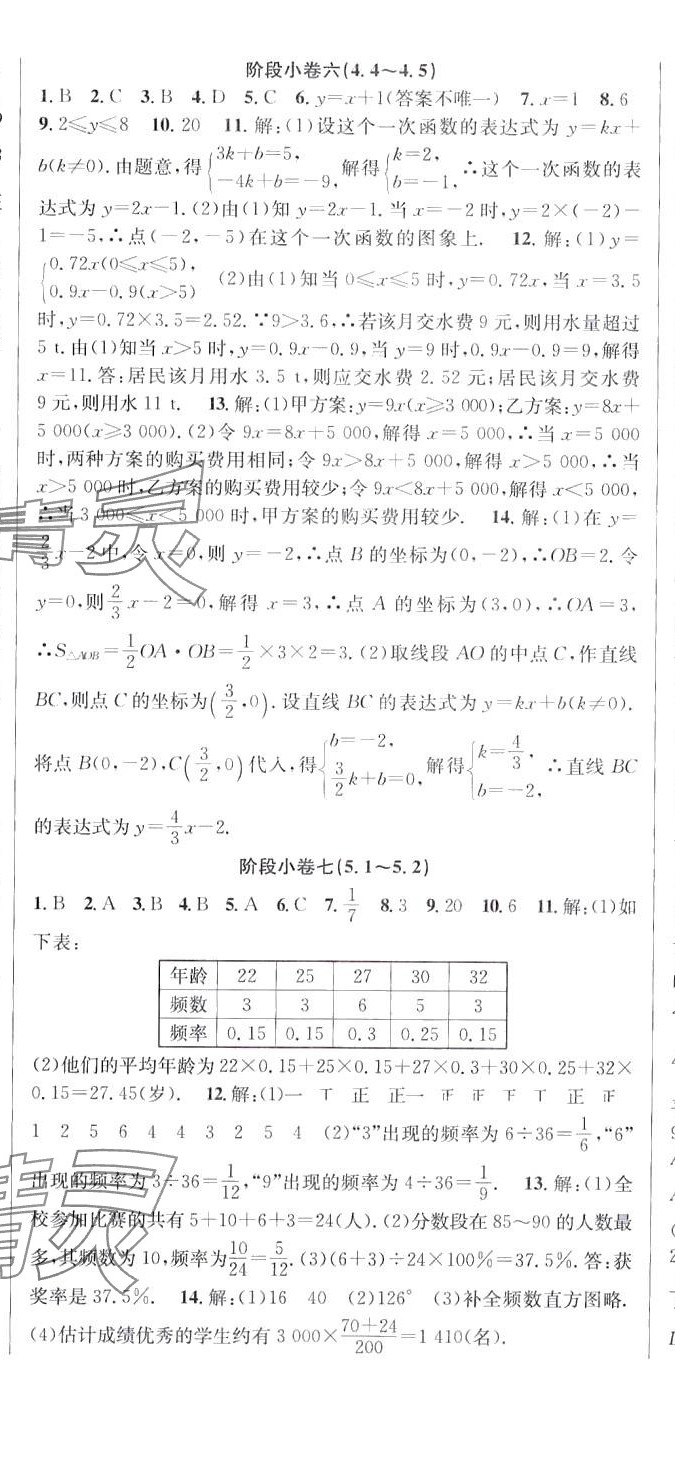 阶段小卷六(4.4～4.5)
1.B 2.C 3.B 4.D 5.C 6.y=x+1(答案不唯一) 7.x=1 8.6
9.2≤y≤8 10.20 11.解:(1)设这个一次函数的表达式为 y=kx+
b(k≠0).由题意,得{3k+b=5, -4k+b=-9, 解得{k=2, b=-1, ∴这个一次函数的表
达式为 y=2x-1.(2)由(1)知 y=2x-1.当 x=-2 时,y=2×(-2)-
1=-5,∴点(-2,-5)在这个一次函数的图象上. 12.解:(1)y=
{0.72x(0≤x≤5), 0.9x-0.9(x>5) (2)由(1)知当 0≤x≤5 时,y=0.72x,当 x=3.5
时,y=0.72×3.5=2.52.∵9>3.6,∴若该月交水费 9 元,则用水量超过
5 t.由(1)知当 x>5 时,y=0.9x-0.9,当 y=9 时,0.9x-0.9=9,解得
x=11.答:居民该月用水 3.5 t,则应交水费 2.52 元;居民该月交水费
9 元,则用水 11 t. 13.解:(1)甲方案:y=9x(x≥3 000);乙方案:y=8x+
5 000(x≥3 000).(2)令 9x=8x+5 000,解得 x=5 000,∴当 x=5 000
时,两种方案的购买费用相同;令 9x>8x+5 000,解得 x>5 000,∴当
x>5 000 时,乙方案的购买费用较少;令 9x<8x+5 000,解得 x<5 000,
∴当 3 000≤x<5 000 时,甲方案的购买费用较少. 14.解:(1)在 y=
2/3x-2 中,令 x=0,则 y=-2,∴点 B 的坐标为(0,-2),∴OB=2.令
y=0,则 2/3x-2=0,解得 x=3,∴点 A 的坐标为(3,0),∴OA=3,
∴S△AOB=1/2OA·OB=1/2×3×2=3.(2)取线段 AO 的中点 C,作直线
BC,则点 C 的坐标为(3/2,0).设直线 BC 的表达式为 y=kx+b(k≠0).
将点 B(0,-2),C(3/2,0)代入,得{b=-2, 3/2k+b=0, 解得{k=4/3, b=-2, ∴直线 BC
的表达式为 y=4/3x-2.
阶段小卷七(5.1～5.2)
1.B 2.A 3.B 4.B 5.A 6.C 7.1/7 8.3 9.20 10.6 11.解:(1)如
下表:
年龄 22 25 27 30 32
频数 3 3 6 5 3
频率 0.15 0.15 0.3 0.25 0.15
(2)他们的平均年龄为 22×0.15+25×0.15+27×0.3+30×0.25+32×
0.15=27.45(岁). 12.解:(1)一 丅 正 正一 𤴓 𤴓 下 丅 正 𤴓
1 2 5 6 4 4 3 2 5 4 (2)“3”出现的频率为 6÷36=1/6,“6”
出现的频率为 3÷36=1/12,“9”出现的频率为 4÷36=1/9. 13.解:(1)全
校参加比赛的共有 5+10+6+3=24(人).(2)分数段在 85～90 的人数最
多,其频数为 10,频率为10/24=5/12.(3)(6+3)÷24×100%=37.5%.答:获
奖率是 37.5%. 14.解:(1)16 40 (2)126° (3)补全频数直方图略.
(4)估计成绩优秀的学生约有 3 000×70+24/200=1 410(名).
精灵
精灵